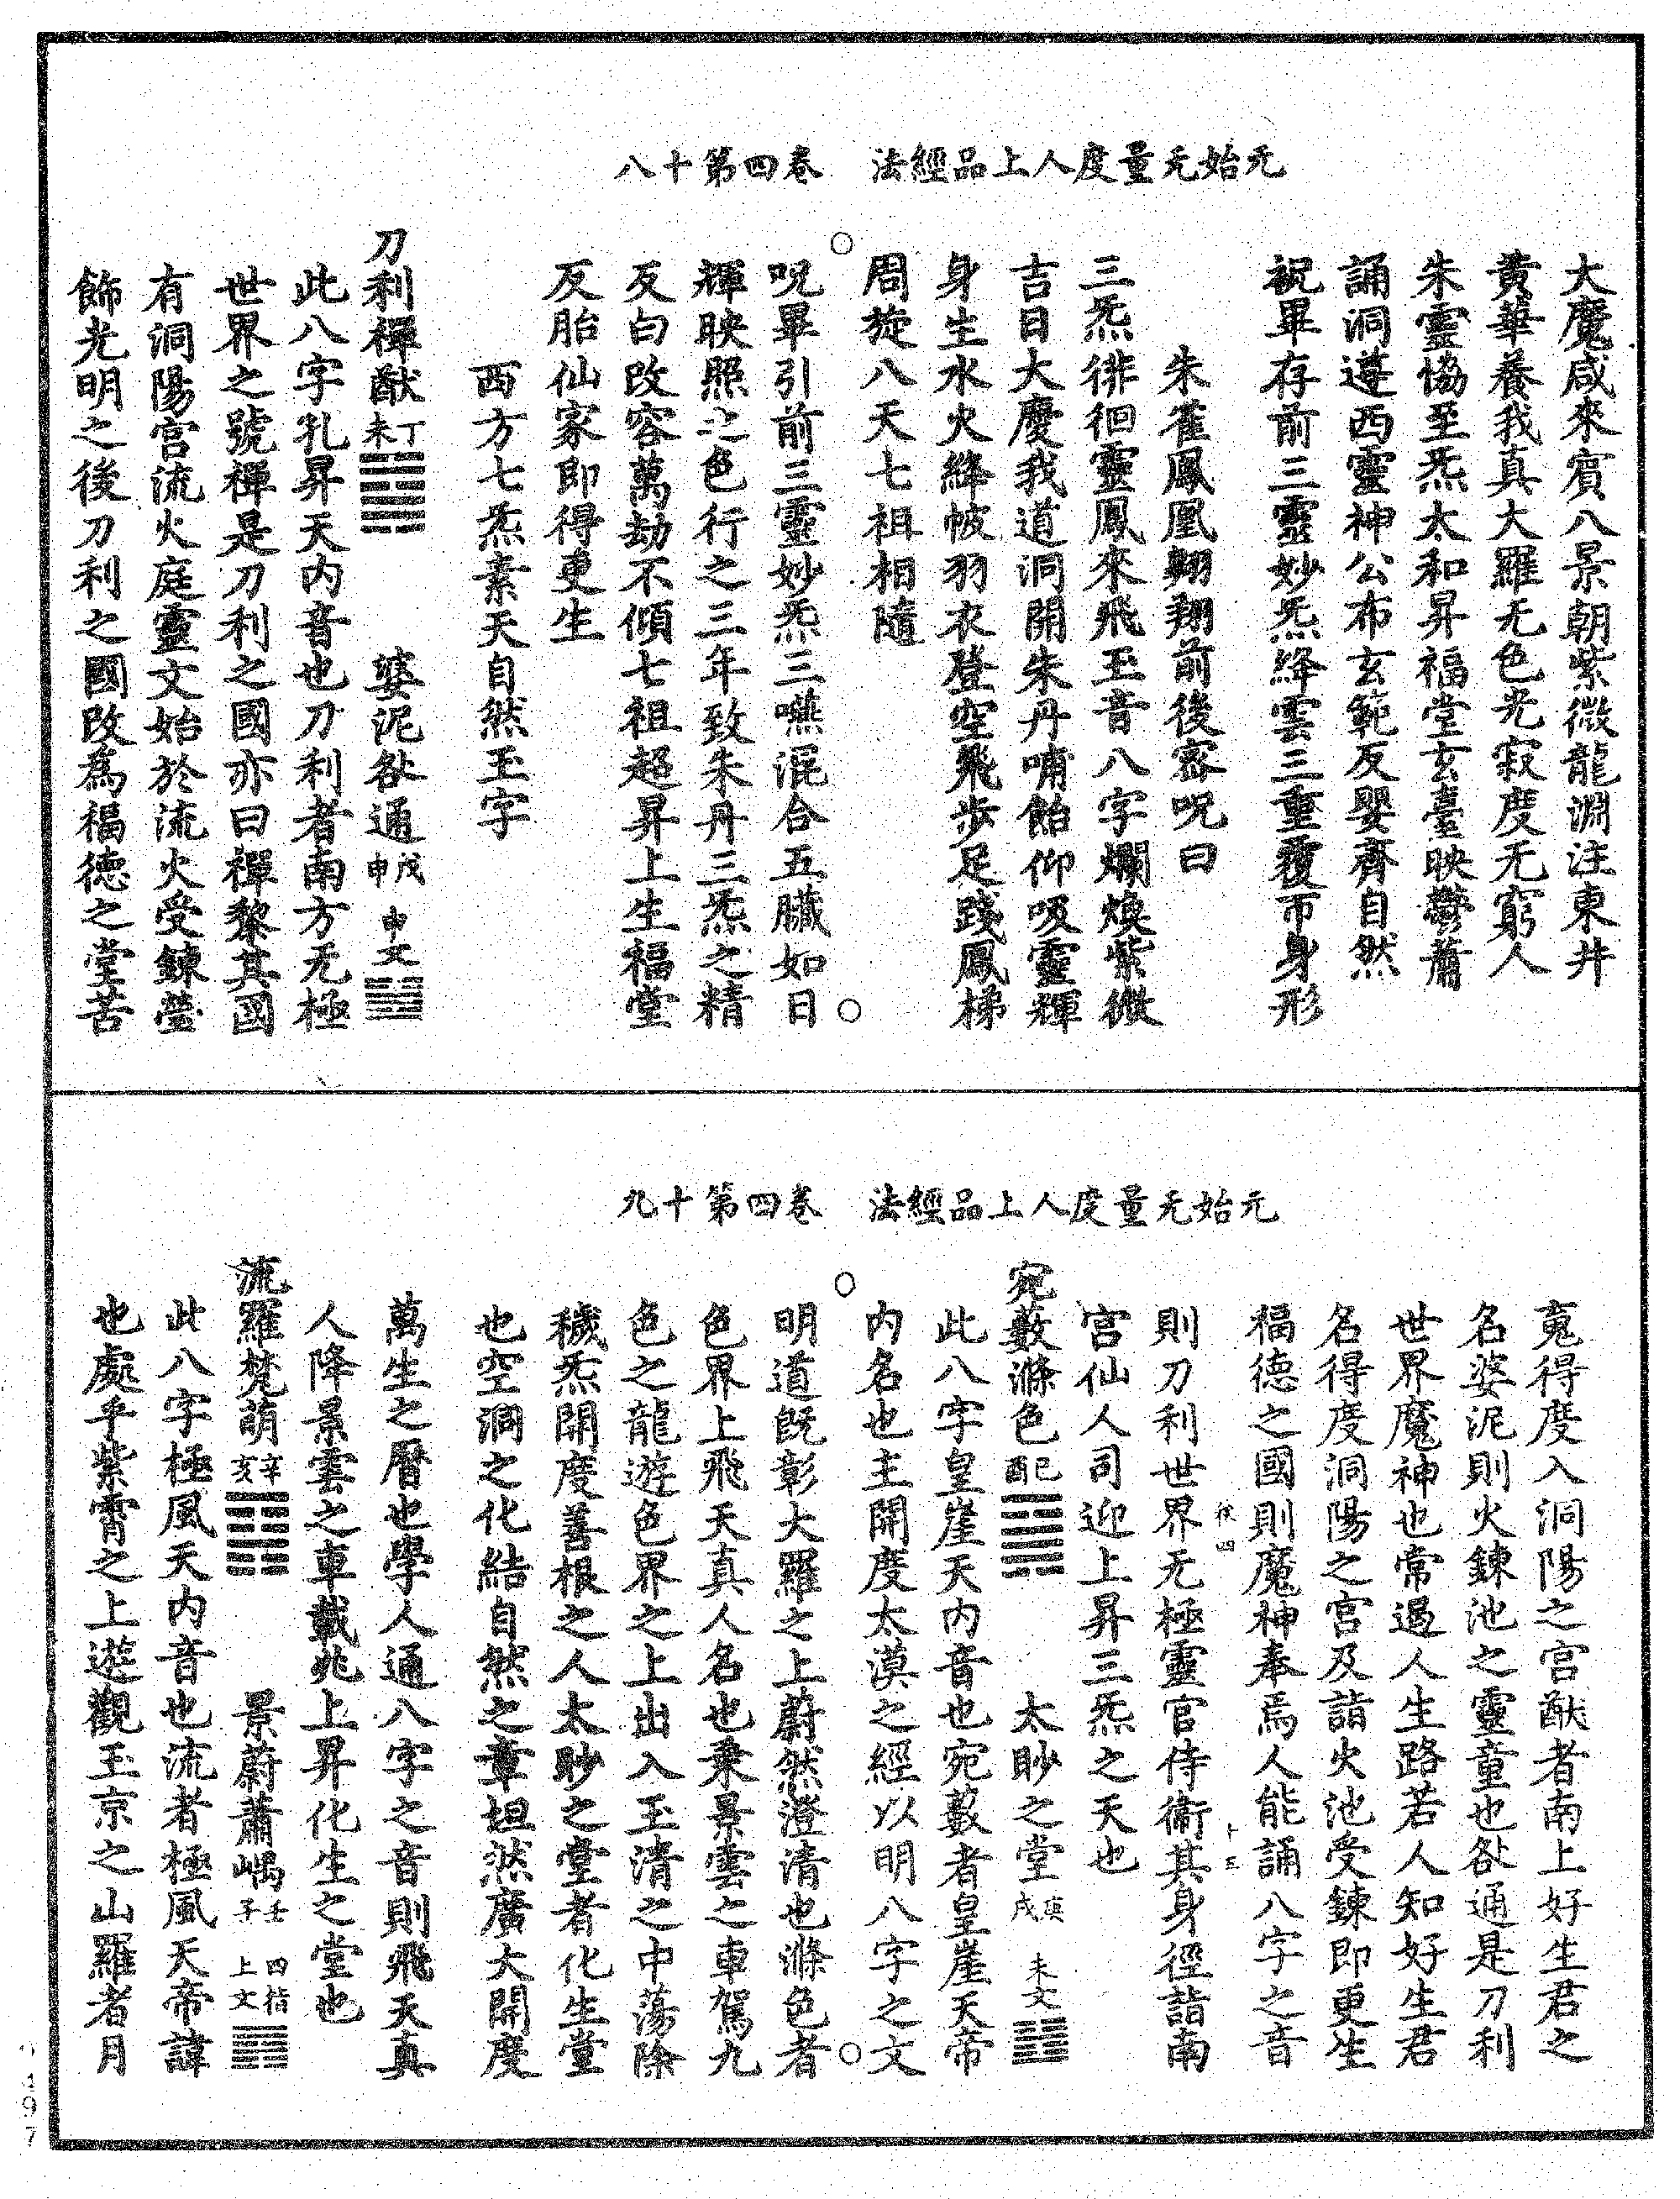 元始无量度人上品經法　卷四第十八
大魔咸來賓八景朝紫微龍淵注東井
黃華養我真大羅无色光寂度无窮人
朱靈協至炁太和昇福堂玄臺映鬱蕭
誦洞遵西靈神公布玄範反嬰齊自然
祝畢存前三靈妙炁絳雲三重覆帀身形
朱雀鳳凰翱翔前後密呪曰
三炁徘徊靈鳳來飛玉音八字爛煥紫微
吉日大慶我道洞開朱丹哺飴仰吸靈輝
身生水火絳帔羽衣登空飛步足踐鳳梯
周旋八天七祖相隨
呪畢引前三靈妙炁三嚥混合五臟如日
輝映照之色行之三年致朱丹三炁之精
反白改容萬劫不傾七祖超昇上生福堂
反胎仙家即得更生
西方七炁素天自然玉字
刀利禪猷丁未　婆泥咎通戊申　申文
此八字孔昇天内音也刀利者南方无極
世界之號禪是刀利之國亦曰禪黎其國
有洞陽宮流火庭靈文始於流火受鍊瑩
飾光明之後刀利之國改為福德之堂苦
元始无量度人上品經法　卷四第十九
䰟得度入洞陽之宮猷者南上好生君之
名婆泥則火鍊池之靈童也咎通是刀利
世界魔神也常遏人生路若人知好生君
名得度洞陽之宮及詣火池受鍊即更生
福德之國則魔神奉焉人能誦八字之音
則刀利世界无極靈官侍衛其身徑詣南
宮仙人司迎上昇三炁之天也
宛藪滌色配　太眇之堂庚戌　未文
此八字皇崖天内音也宛藪者皇崖天帝
内名也主開度太漠之經以明八字之文
明道既彰大羅之上蔚然澄清也滌色者
色界上飛天真人名也乗景雲之車駕九
色之龍遊色界之上出入玉清之中蕩除
穢炁開度善根之人太眇之堂者化生堂
也空洞之化結自然之章坦然廣大開度
萬生之曆也學人通八字之音則飛天真
人降景雲之車載兆上昇化生之堂也
流羅梵萌辛亥　景蔚蕭嵎壬子　四指上文
此八字極風天内音也流者極風天帝諱
也處乎紫霄之上遊觀玉京之山羅者月